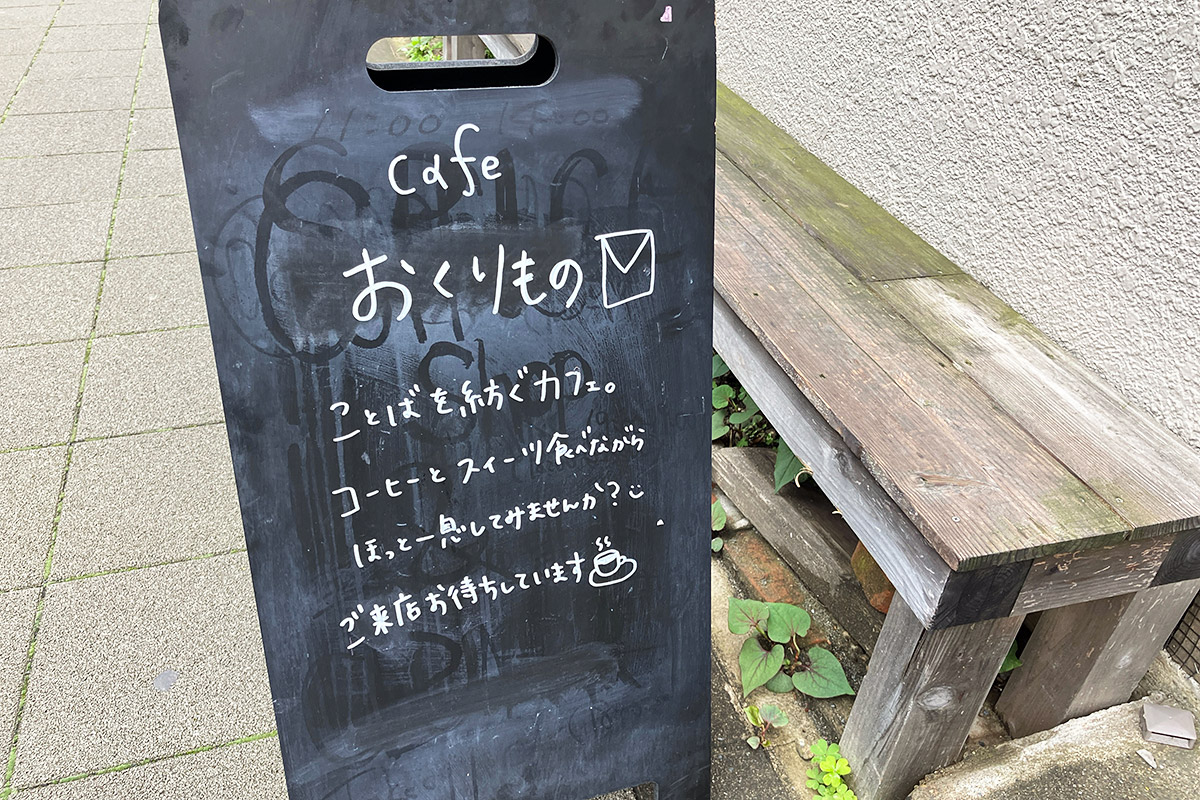 11:00
cafe
おくりもの
ことばを紡ぐカフェ。
コーヒーとスイーツ食べながら
ほっと一息してみませんか?
ご来店お待ちしています
Shop